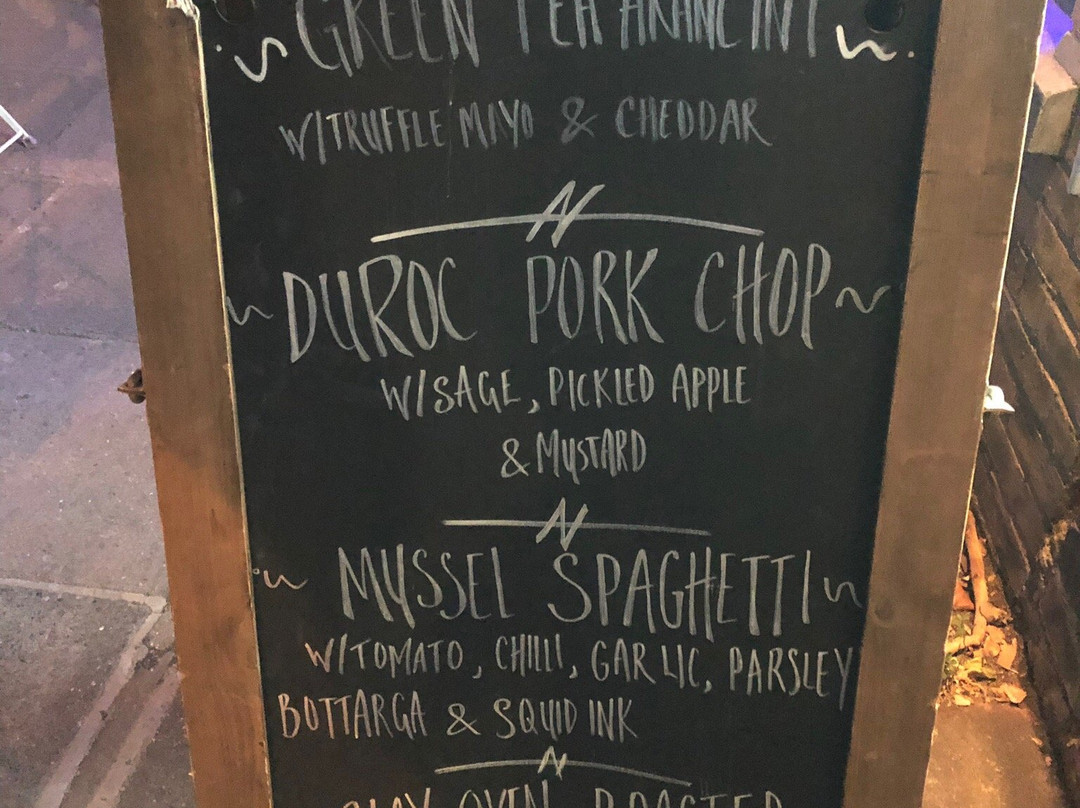 GREEN ARANCINI
W/TRUFFLE MAYO & CHEDDAR
DUROC PORK CHOP
W/SAGE, PICKLED APPLE
& MUSTARD
MUSSEL SPAGHETTI
W/TOMATO, CHILLI, GARLIC, PARSLEY
BOTTARGA & SQUID INK
CLAY OVEN ROASTED